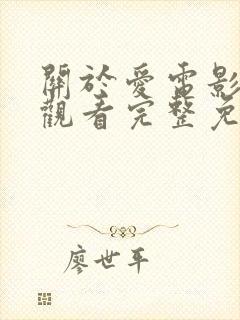 關於愛電影
觀看完整免
廖世平